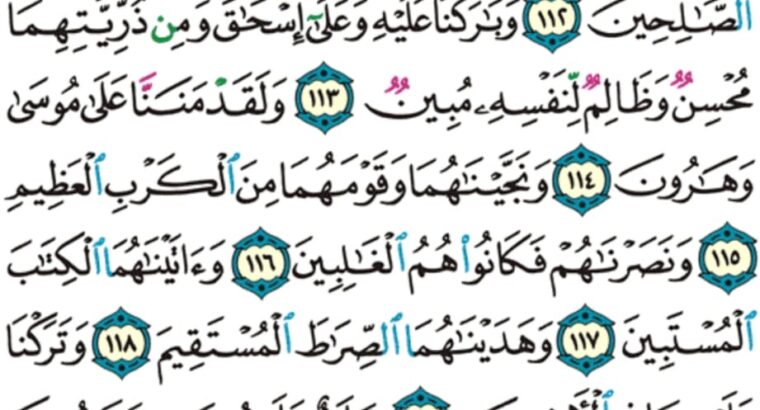 ٱلصَّـٰلِحِينَ ١١٢ وَبَـٰرَكْنَا عَلَيْهِ وَعَلَىٰٓ إِسْحَـٰقَ وَمِن ذُرِّيَّتِهِمَا
مُحْسِنٌ وَظَالِمٌ لِّنَفْسِهِۦ مُبِينٌ ١١٣ وَلَقَدْ مَنَنَّا عَلَىٰ مُوسَىٰ
وَهَـٰرُونَ ١١٤ وَنَجَّيْنَـٰهُمَا وَقَوْمَهُمَا مِنَ ٱلْكَرْبِ ٱلْعَظِيمِ
١١٥ وَنَصَرْنَـٰهُمْ فَكَانُوا۟ هُمُ ٱلْغَـٰلِبِينَ ١١٦ وَءَاتَيْنَـٰهُمَا ٱلْكِتَـٰبَ
ٱلْمُسْتَبِينَ ١١٧ وَهَدَيْنَـٰهُمَا ٱلصِّرَٰطَ ٱلْمُسْتَقِيمَ ١١٨ وَتَرَكْنَا